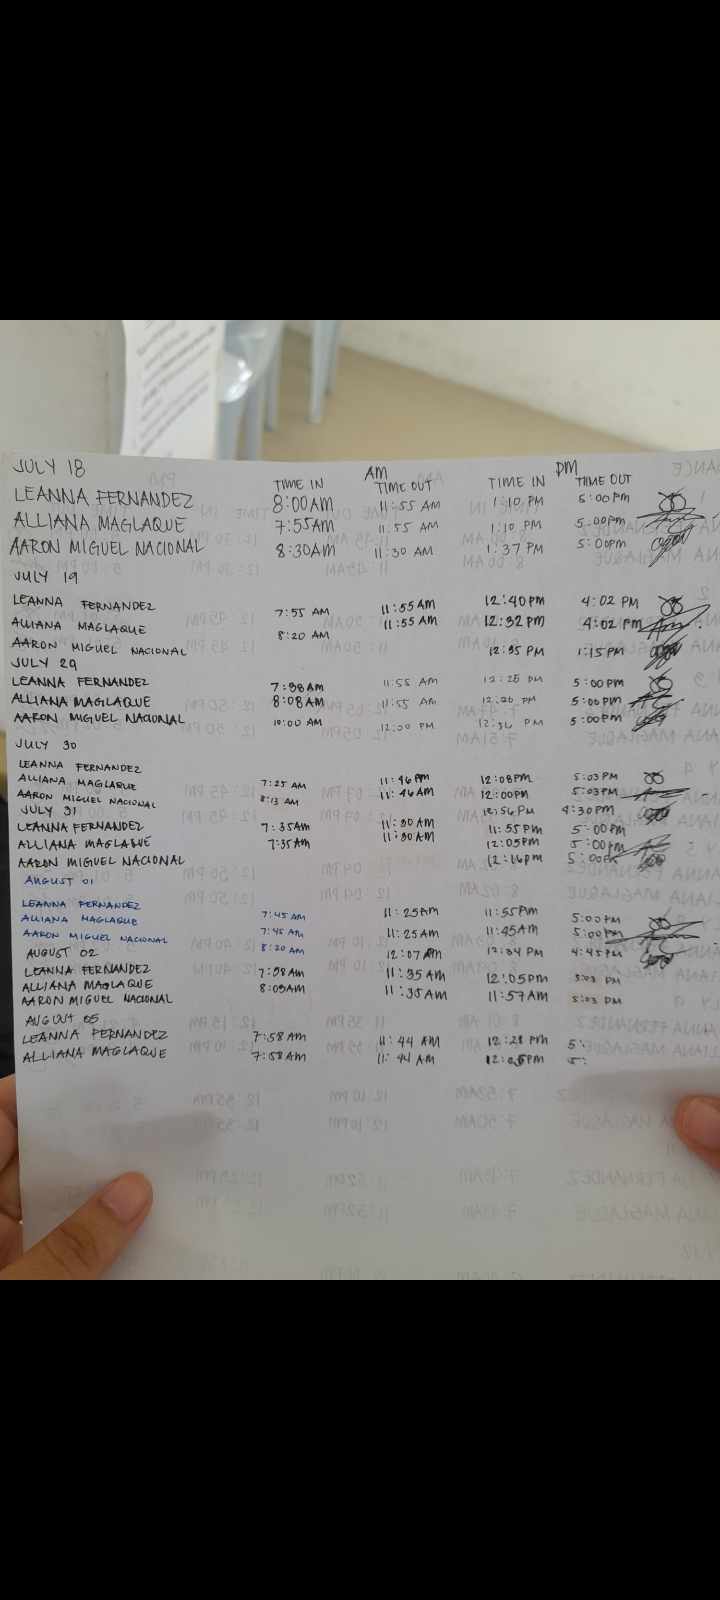 JULY 18
AM PM
TIME IN TIME OUT TIME IN TIME OUT
LEANNA FERNANDEZ 8:00AM 11:55 AM 1:10 PM 5:00pm
ALLIANA MAGLAQUE 7:55AM 11:55 AM 1:10 PM 5:00pm
AARON MIGUEL NACIONAL 8:30AM 11:30 AM 1:37 PM 5:00pm
JULY 19
LEANNA FERNANDEZ 7:55 AM 11:55AM 12:40PM 4:02 PM
ALLIANA MAGLAQUE 8:20 AM 11:55AM 12:32PM 4:02 PM
AARON MIGUEL NACIONAL 12:35 PM 1:15PM
JULY 29
LEANNA FERNANDEZ 7:38AM 11:55 AM 12:25 PM 5:00PM
ALLIANA MAGLAQUE 8:08AM 11:55 AM 12:20 PM 5:00pm
AARON MIGUEL NACIONAL 10:00 AM 12:00 PM 12:36 PM 5:00PM
JULY 30
LEANNA FERNANDEZ 7:25 AM 11:46 AM 12:08PM 5:03 PM
ALLIANA MAGLAQUE 8:13 AM 11:46AM 12:00PM 5:03PM
AARON MIGUEL NACIONAL 12:56PM 4:30PM
JULY 31
LEANNA FERNANDEZ 7:35AM 11:30AM 11:55PM 5:00PM
ALLIANA MAGLAQUE 7:35AM 11:30AM 12:05PM 5:00pm
AARON MIGUEL NACIONAL 12:16PM 5:00PM
AUGUST 01
LEANNA FERNANDEZ 7:45 AM 11:25AM 11:55PM 5:00PM
ALLIANA MAGLAQUE 7:45 AM 11:25AM 11:45AM 5:00PM
AARON MIGUEL NACIONAL 8:20 AM 12:07 12:34 PM 4:45PM
AUGUST 02
LEANNA FERNANDEZ 7:58AM 11:35AM 12:05PM 5:03 PM
ALLIANA MAGLAQUE 8:05AM 11:35AM 11:57AM 5:03 PM
AARON MIGUEL NACIONAL
AUGUST 05
LEANNA FERNANDEZ 7:58AM 11:44 AM 12:28 PM 5:
ALLIANA MAGLAQUE 7:58AM 11:44 AM PM 5: